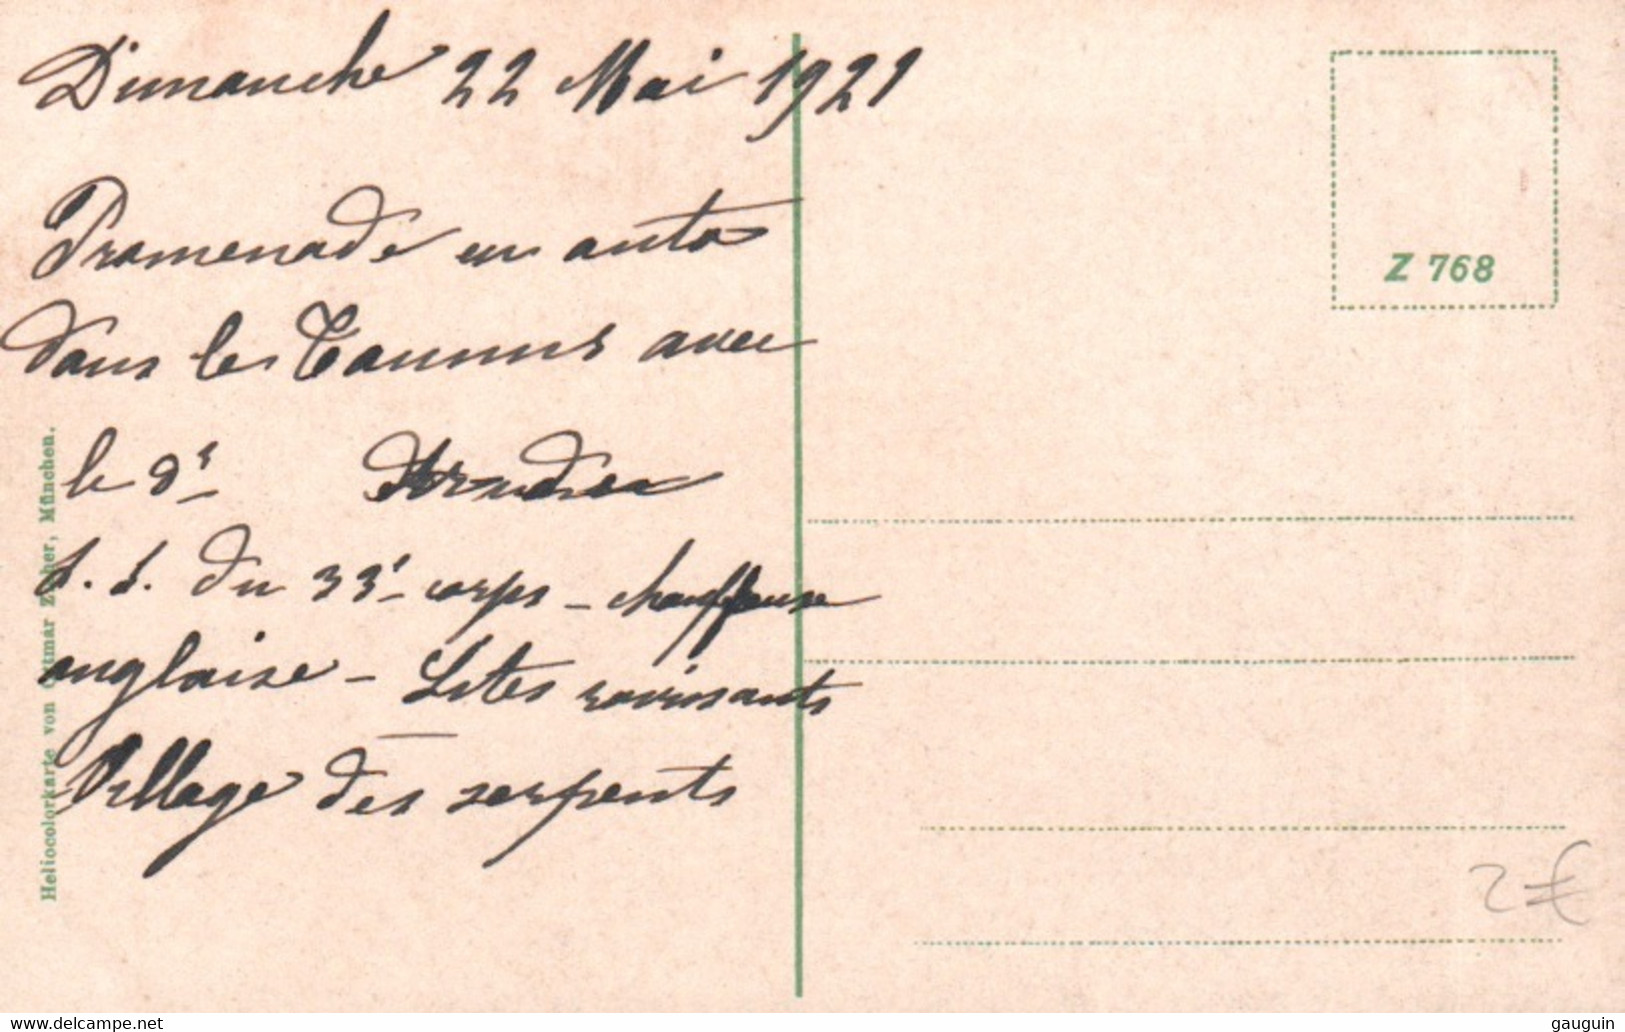 Dimanche 22 Mai 1921
Promenade en auto
dans le Taunus avec
le Dr
S. S. du 33e corps - chauffeuse
anglaise - Sites ravissants
Village des serpents
Z 768
Heliocolorkarte von Ottmar Zieher, München.
2€
gauguin
www.delcampe.net